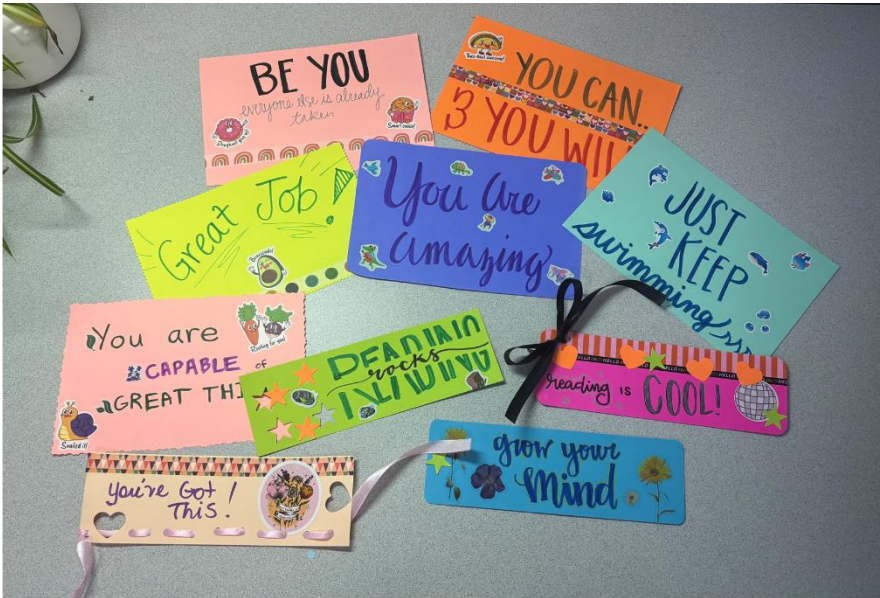 BE YOU
everyone else is already
taken
YOU CAN...
& YOU WILL
Great Job!
You Are
amazing
JUST
KEEP
swimming
You are
CAPABLE of
GREAT THI
Rooting for you!
Snailed it!
READING
rocks
HELLO HELLO
reading is COOL!
You've Got
This!
grow your
Mind